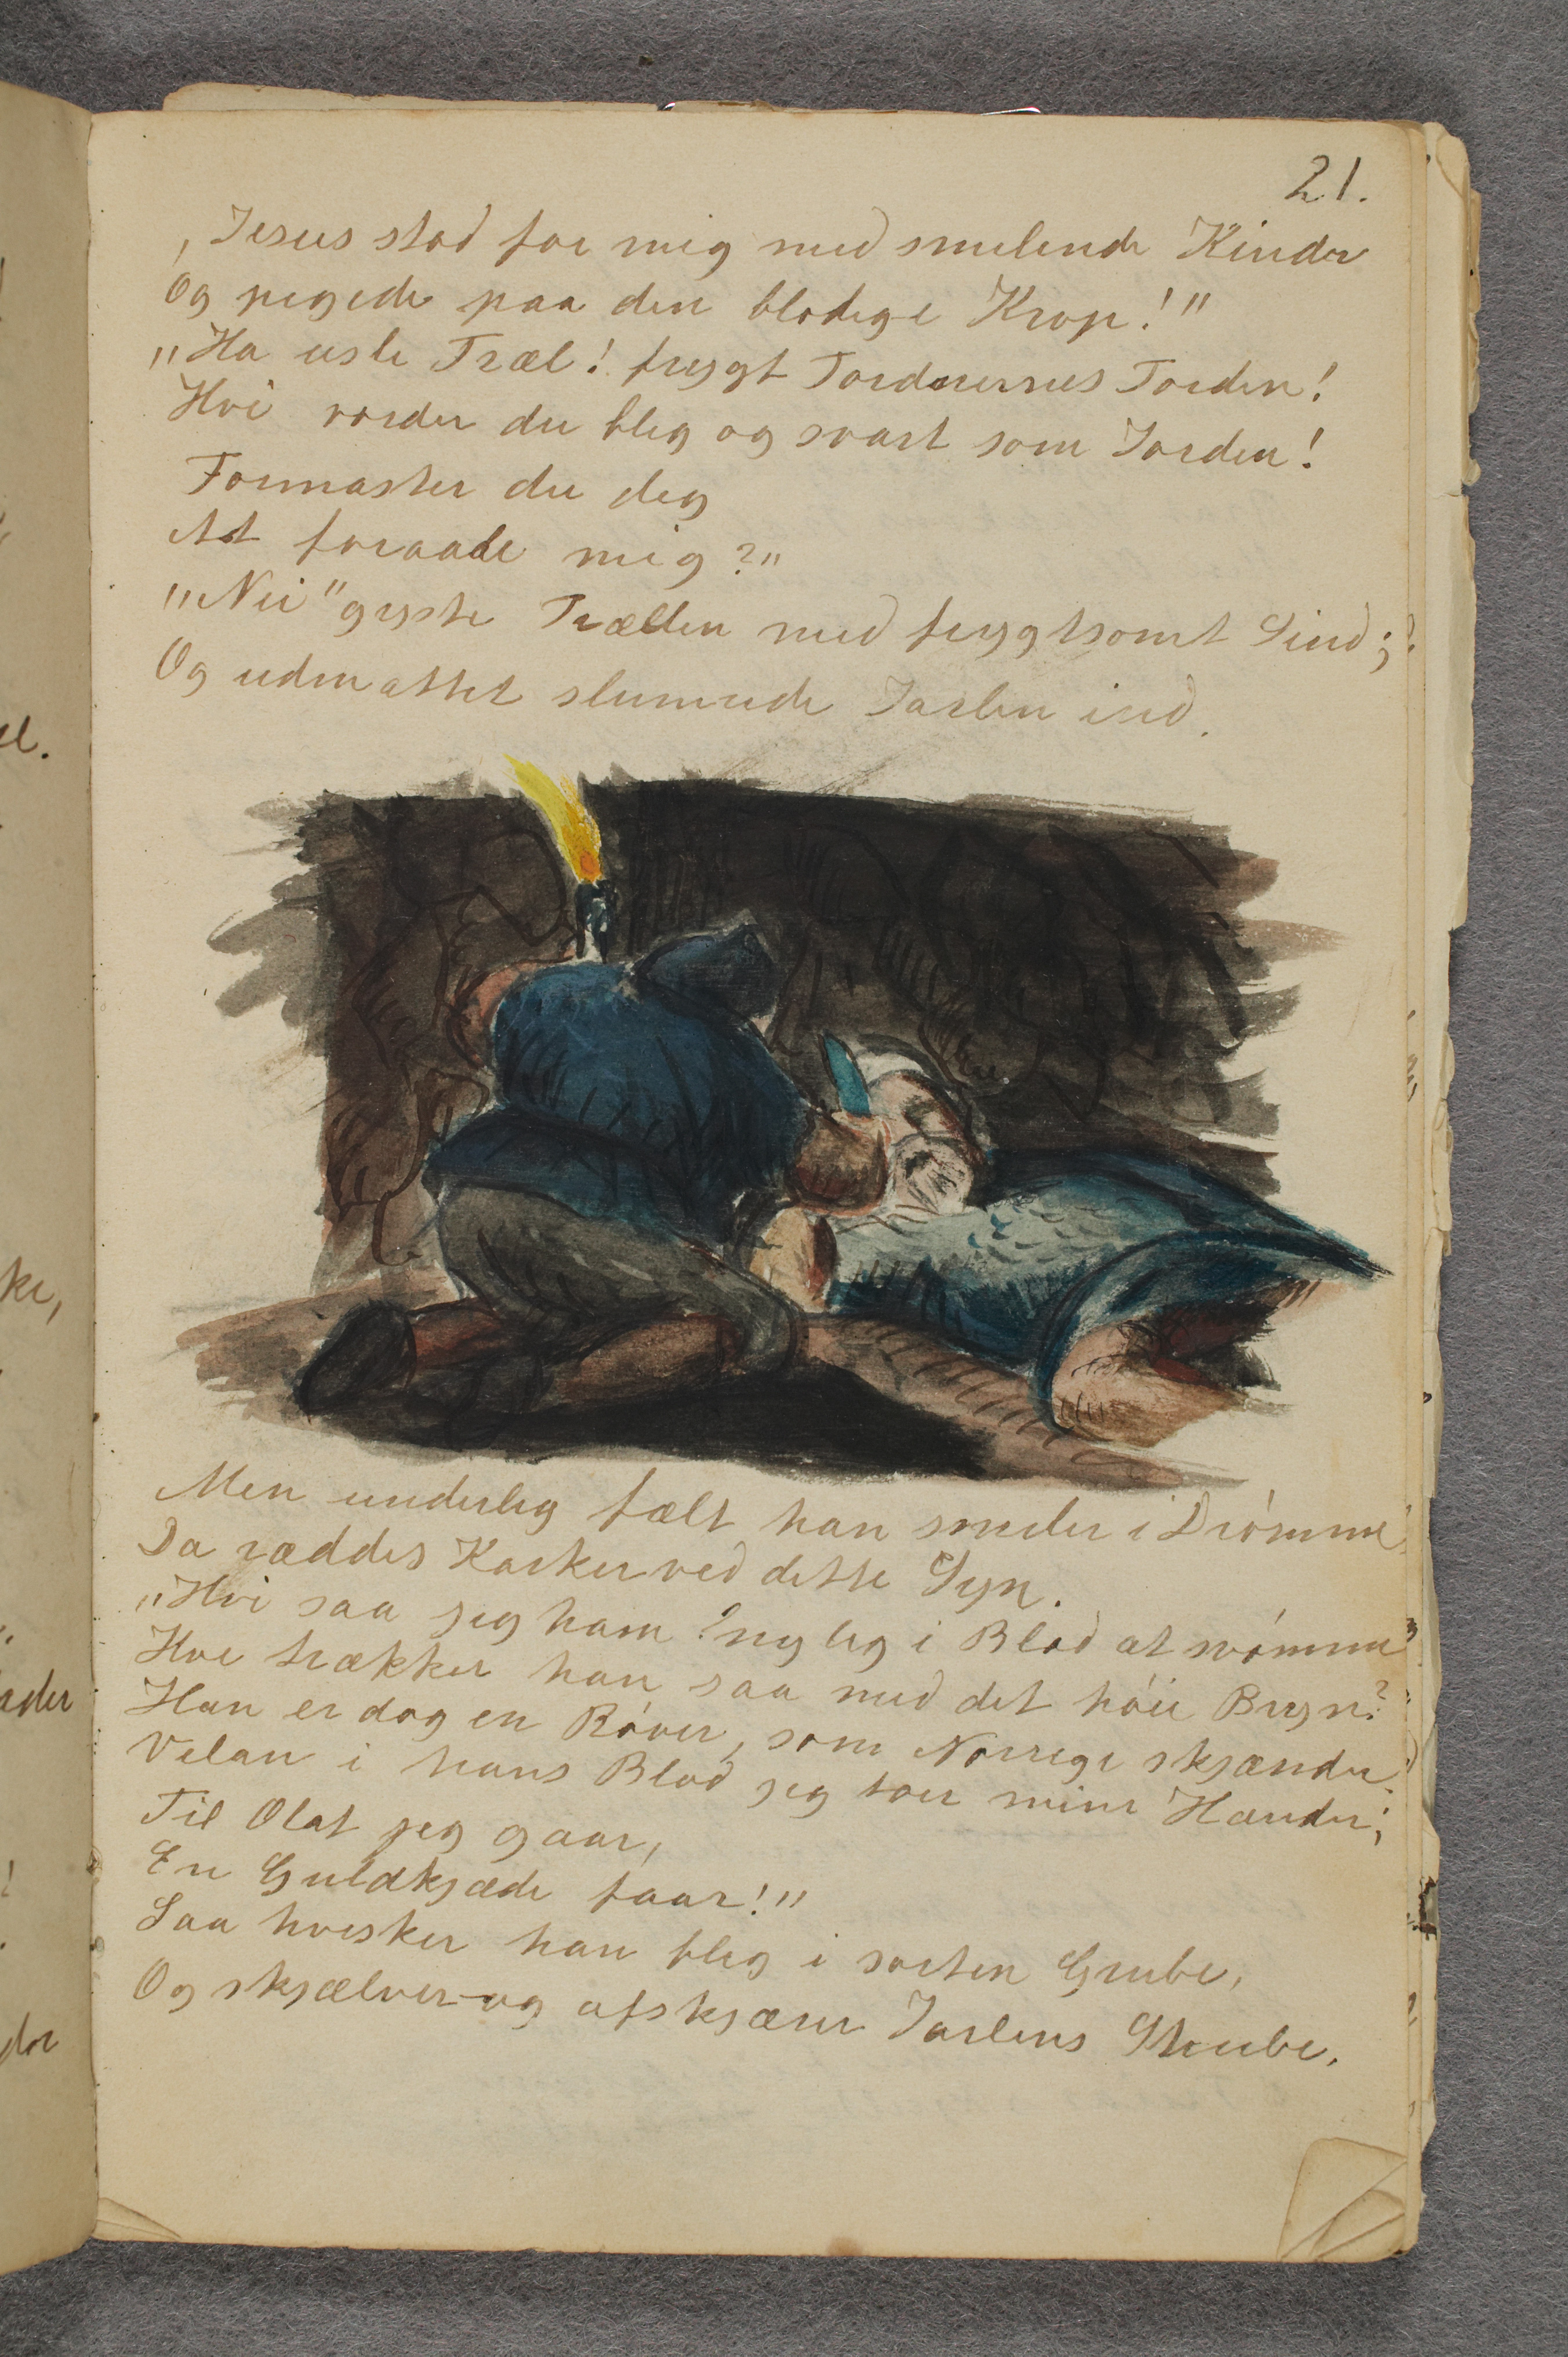 21.
„Jesus stod for mig med smilende Kinder
Og pegede paa den blodige Krop!"
„Ha usle Træl! frygt Tordnerens Torden!
Hvi vorder du bleg og svart som Jorden!
Formaster du dig
At foraade mig?"
„Nei" gyste Trællen med frygtsomt Sind;
Og udmattet slumrede Jarlen ind.
Men underlig fælt han smiler i Drømme
Da ræddes Karker ved dette Syn.
„Hvi saa jeg ham nylig i Blod at svømme
Hvi trækker han saa med det høie Bryn?
Han er dog en Røver, som Norrige skjænder.
Velan i hans Blod jeg toer mine Hænder;
Til Olaf jeg gaar,
En Guldkjæde faar!"
Saa hvisker han bleg i sorten Grube,
Og skjælver og afskjærer Jarlens Strube.
el.
ke,
ader
der